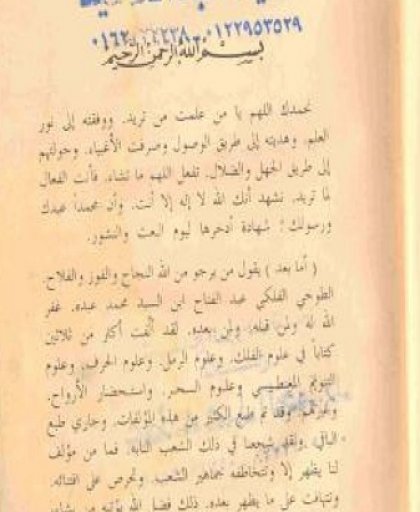 ٠١٢٢٩٥٣٥٢٩
بسم الله الرحمن الرحيم
نحمدك اللهم يا من علمت من تريد. ووفقته إلى نور
العلم. وهديته إلى طريق الوصول وصرفت الأغبياء. وحولتهم
إلى طريق الجهل والضلال. تفعل اللهم ما تشاء. فأنت الفعال
لما تريد. نشهد أنك الله لا إله إلا أنت. وأن محمدا عبدك
ورسولك؛ شهادة أدخرها ليوم البعث والنشور.
( أما بعد ) يقول من يرجو من الله النجاح والفوز والفلاح.
الطوخي الفلكي عبد الفتاح ابن السيد محمد عبده. غفر
الله له ولمن قبله. ولمن بعده. لقد ألفت أكثر من ثلاثين
كتابا في علوم الفلك. وعلوم الرمل. وعلوم الحرف. وعلوم
التنويم المغنطيسي وعلوم السحر. واستحضار الأرواح.
وغيرهم. وقد تم طبع الكثير من هذه المؤلفات. وجاري طبع
الباقي. ولقد شجعنا في ذلك الشعب النابه. فما من مؤلف
لنا يظهر إلا وتتخاطفه جماهير الشعب. وتحرص على اقتنائه.
وتتهافت على ما يظهر بعده. ذلك فضل الله يؤتيه من يشاء.